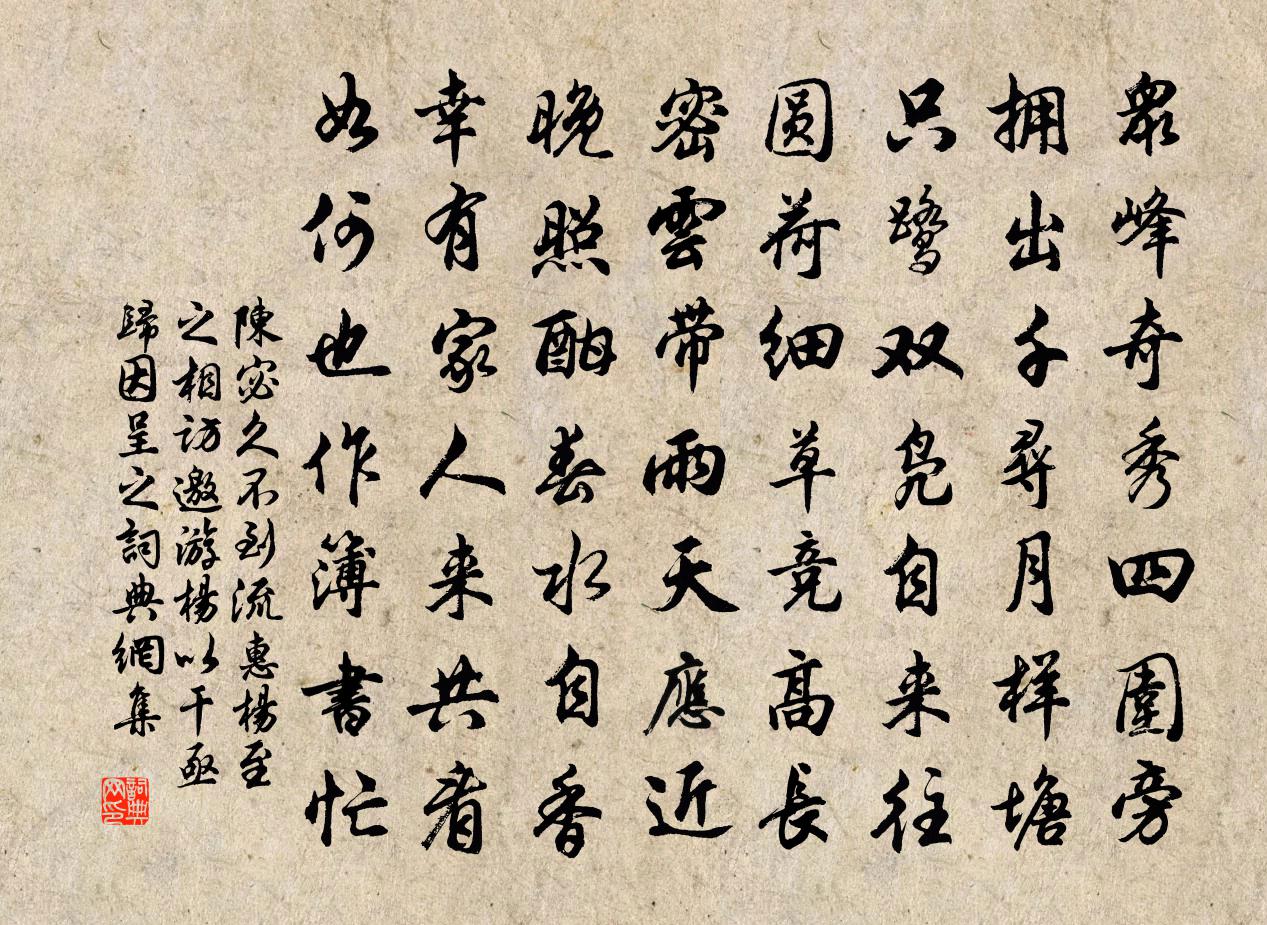 眾峰奇秀四圍旁
拥出千尋月样塘
只鹭双凫自来往
圆荷细草竞高長
密雲帶雨天應近
晚照酣春水自香
幸有家人来共看
如何也作簿書忙
陳宓久不到流惠楊至
之相訪邀游楊以干亟
歸因呈之詞典網集
詞典网印